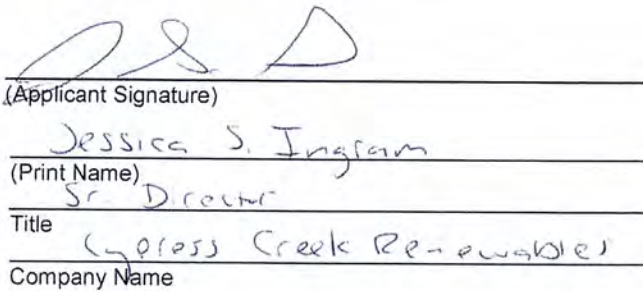 (Applicant Signature)
Jessica S. Ingram
(Print Name)
Sr Director
Title
Cypress Creek Renewables
Company Name